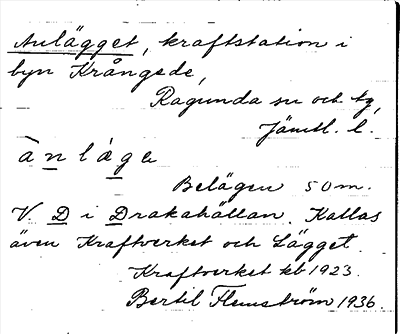 Anlägget, kraftstation i
byn Krångede,
Ragunda sn och tg,
Jämtl. l.
ànláge
Belägen 50 m.
V. D i Drakahällan. Kallas
även Kraftverket och Lägget.
Kraftverket kb 1923.
Bertil Flemström 1936.